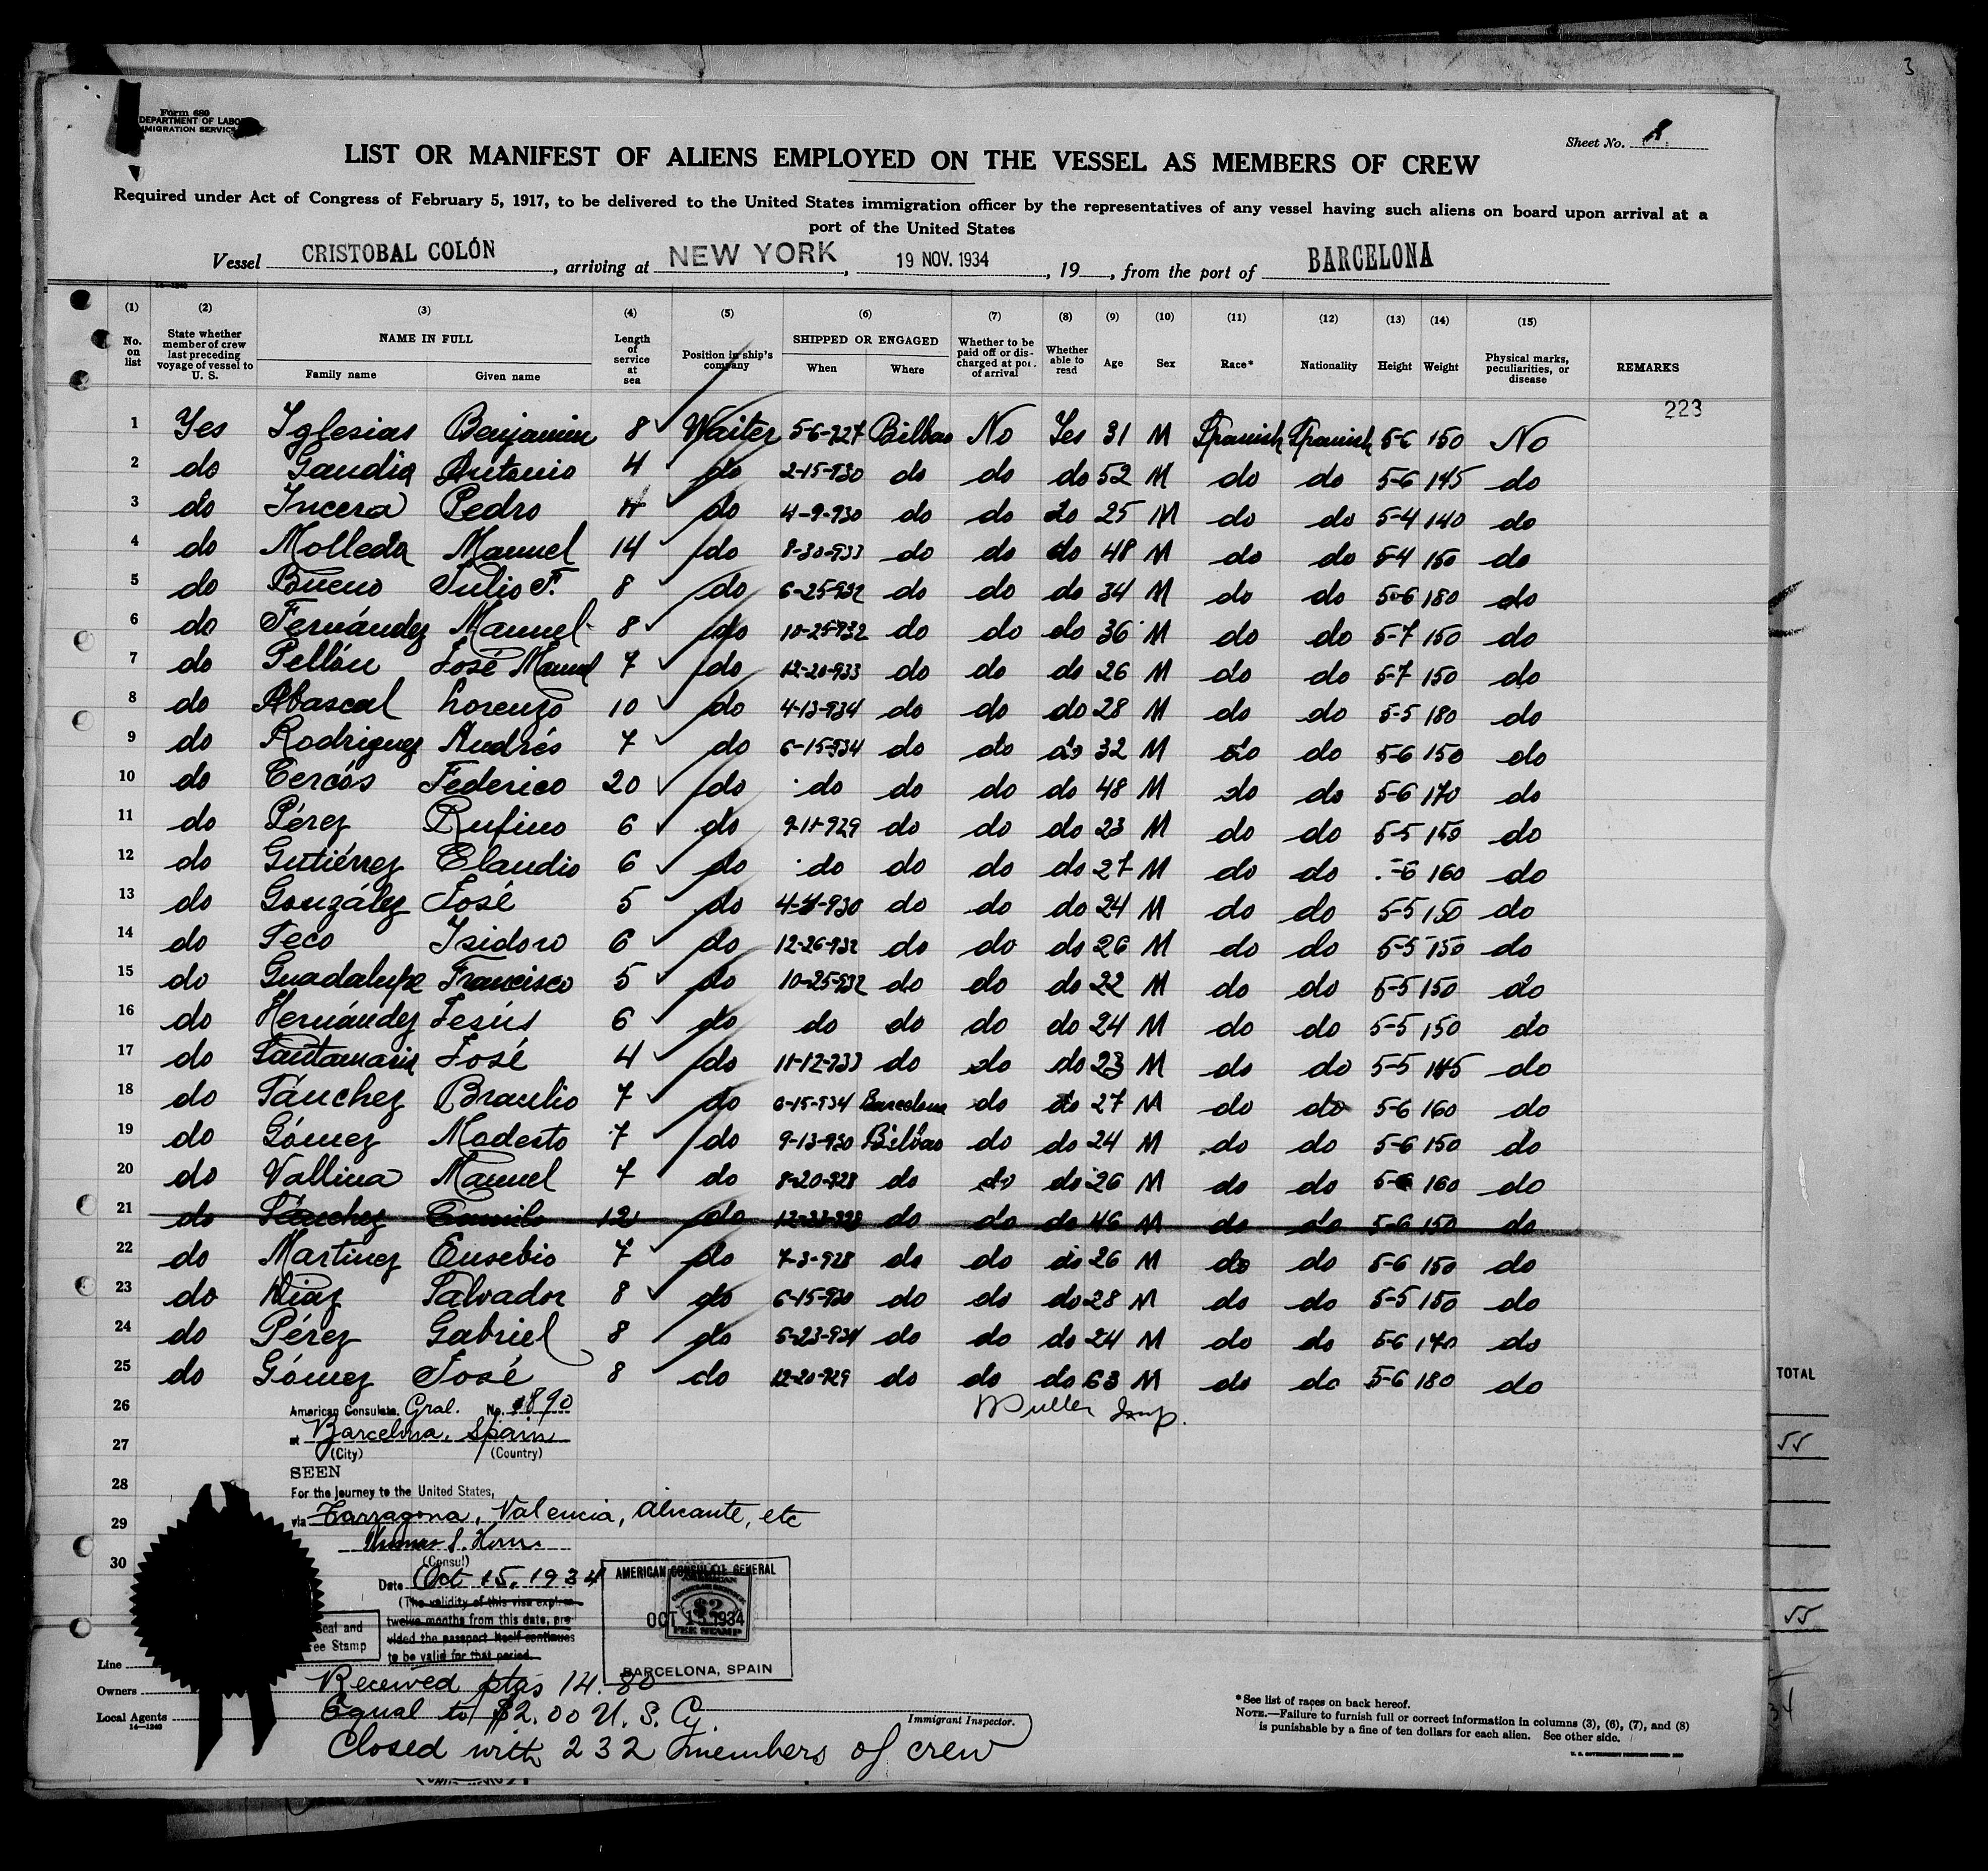 3
Form 680
DEPARTMENT OF LABOR
IMMIGRATION SERVICE
Sheet No.
LIST OR MANIFEST OF ALIENS EMPLOYED ON THE VESSEL AS MEMBERS OF CREW
Required under Act of Congress of February 5, 1917, to be delivered to the United States immigration officer by the representatives of any vessel having such aliens on board upon arrival at a
port of the United States
Vessel CRISTOBAL COLÓN, arriving at NEW YORK, 19 NOV. 1934, 19, from the port of BARCELONA
(1) (2) (3) (4) (5) (6) (7) (8) (9) (10) (11) (12) (13) (14) (15)
No. on list State whether member of crew last preceding voyage of vessel to U. S. NAME IN FULL Family name Given name Length of service at sea Position in ship's company SHIPPED OR ENGAGED When Where Whether to be paid off or discharged at port of arrival Whether able to read Age Sex Race* Nationality Height Weight Physical marks, peculiarities, or disease REMARKS
223
1 Yes Iglesias Benjamin 8 Waiter 5-6-927 Bilbao No Yes 31 M Spanish Spanish 5-6 150 No
2 do Gaudia Antonio 4 do 2-15-930 do do do 52 M do do 5-6 145 do
3 do Incera Pedro 4 do 4-9-930 do do do 25 M do do 5-4 140 do
4 do Molleda Manuel 14 do 8-30-933 do do do 48 M do do 5-4 150 do
5 do Bueno Julio F. 8 do 6-25-932 do do do 34 M do do 5-6 180 do
6 do Fernández Manuel 8 do 10-25-932 do do do 36 M do do 5-7 150 do
7 do Pellón José Manuel 7 do 12-20-933 do do do 26 M do do 5-7 150 do
8 do Abascal Lorenzo 10 do 4-13-934 do do do 28 M do do 5-5 180 do
9 do Rodriguez Andrés 7 do 6-15-934 do do do 32 M do do 5-6 150 do
10 do Cercós Federico 20 do do do do do 48 M do do 5-6 170 do
11 do Pérez Rufino 6 do 9-11-929 do do do 23 M do do 5-5 150 do
12 do Gutiérrez Claudio 6 do do do do do 27 M do do -6 160 do
13 do González José 5 do 4-4-930 do do do 24 M do do 5-5 150 do
14 do Teco Isidoro 6 do 12-26-932 do do do 26 M do do 5-5 150 do
15 do Guadalupe Francisco 5 do 10-25-932 do do do 22 M do do 5-5 150 do
16 do Hernández Jesús 6 do do do do do 24 M do do 5-5 150 do
17 do Santamaria José 4 do 11-12-933 do do do 23 M do do 5-5 145 do
18 do Sánchez Braulio 7 do 6-15-934 Barcelona do do 27 M do do 5-6 160 do
19 do Gómez Modesto 7 do 9-13-930 Bilbao do do 24 M do do 5-6 150 do
20 do Vallina Manuel 7 do 8-20-928 do do do 26 M do do 5-6 160 do
21 do Sánchez Camilo 12 do do do do 46 M do do 5-6 150 do
22 do Martinez Eusebio 7 do 7-3-928 do do do 26 M do do 5-6 150 do
23 do Diaz Salvador 8 do 6-15-930 do do do 28 M do do 5-5 150 do
24 do Pérez Gabriel 8 do 5-23-934 do do do 24 M do do 5-6 170 do
25 do Gómez José 8 do 12-20-929 do do do 63 M do do 5-6 180 do
TOTAL
26 American Consulate Gral. No. 890
Muller Insp.
27 at Barcelona, Spain
(City) (Country)
55
SEEN
28 For the journey to the United States,
29 via Tarragona, Valencia, Alicante, etc
30 (Consul)
Date Oct 15, 1934
(The validity of this visa expires
twelve months from this date, pro-
vided the passport itself continues
to be valid for that period.
Seal and
Fee Stamp
AMERICAN CONSULATE GENERAL
$2
OCT 15 1934
FEE STAMP
BARCELONA, SPAIN
55
Line
Owners
Local Agents
14—1240
Received ptas 14.80
Equal to $2.00 U. S. Cy.
Closed with 232 members of crew
Immigrant Inspector.
*See list of races on back hereof.
NOTE.—Failure to furnish full or correct information in columns (3), (6), (7), and (8)
is punishable by a fine of ten dollars for each alien. See other side.
U. S. GOVERNMENT PRINTING OFFICE
34